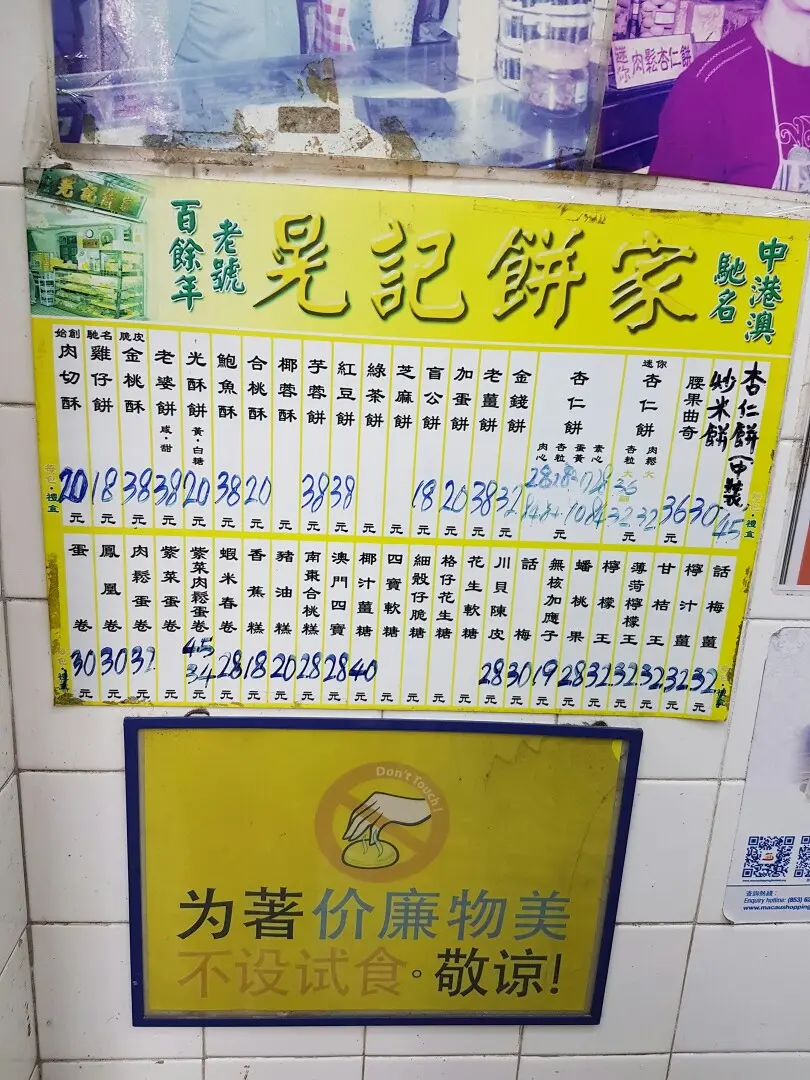 肉鬆杏仁餅
晃記餅家
百餘年
老號
晃記餅家
馳名
中港澳
始創 肉切酥 20 元
馳名 雞仔餅 18 元
脆皮 金桃酥 38 元
老婆餅 咸·甜 38 元
光酥餅 黃·白糖 20 元
鮑魚酥 38 元
合桃酥 20 元
椰蓉酥 元
芋蓉餅 38 元
紅豆餅 38 元
綠茶餅 元
芝麻餅 元
盲公餅 18 元
加蛋餅 20 元
老薑餅 38 元
金錢餅 32 元
杏仁餅 肉心 杏粒 蛋黃 素心 28 28 28 元
迷你 杏仁餅 杏粒 肉鬆 大 大 36 32 32 元
腰果曲奇 36 元
炒米餅 30 元
杏仁餅(中裝 45
禮盒
蛋卷 30 元
鳳凰卷 30 元
肉鬆蛋卷 32 元
紫菜蛋卷 元
紫菜肉鬆蛋卷 45 34 元
蝦米春卷 28 元
香蕉糕 18 元
豬油糕 20 元
南棗合桃糕 28 元
澳門四寶 28 元
椰汁薑糖 40 元
四寶軟糖 元
細殼仔脆糖 元
格仔花生糖 元
花生軟糖 元
川貝陳皮 28 元
話梅 30 元
無核加應子 19 元
蟠桃果 28 元
檸檬王 32 元
薄荷檸檬王 32 元
甘桔王 32 元
檸汁薑 32 元
話梅薑 32 元
Don't Touch!
为著价廉物美
不设试食。敬谅!
查詢熱線：
Enquiry hotline: (853) 62
www.macaushopping